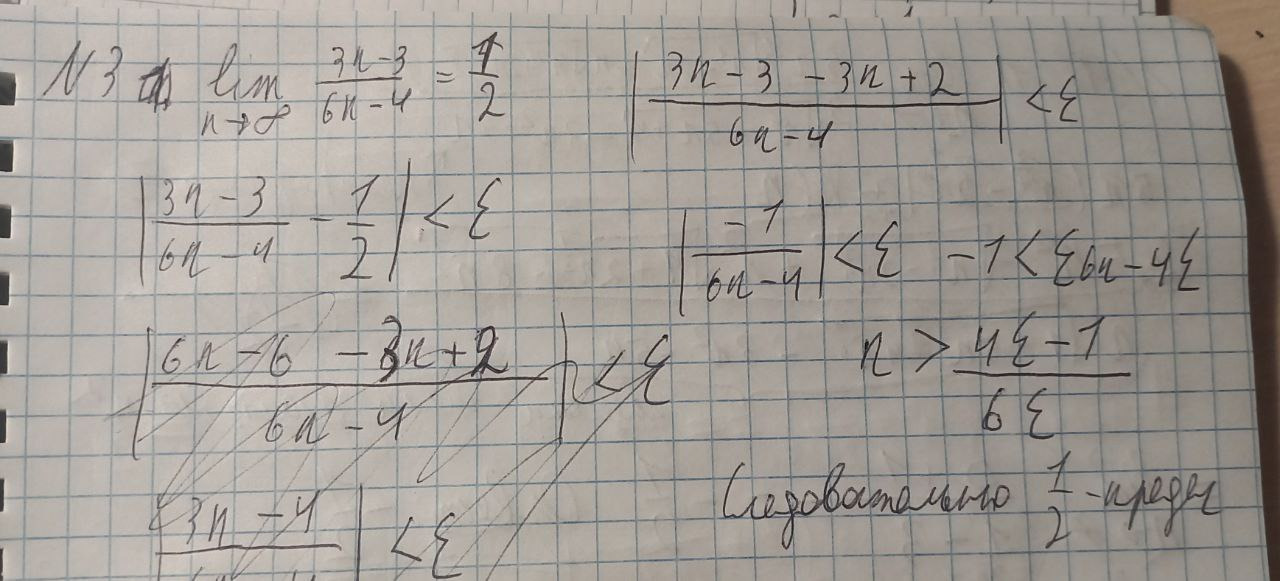 N3 lim n→∞ (3n-3)/(6n-4) = 1/2
|(3n-3)/(6n-4) - 1/2| < ε
|(6n-6 -3n+2)/(6n-4)| < ε
|3n-4
< ε
|(3n-3-3n+2)/(6n-4)| < ε
|-1/(6n-4)| < ε -1 < ε6n-4ε
n > (4ε-1)/(6ε)
Следовательно 1/2 -предел